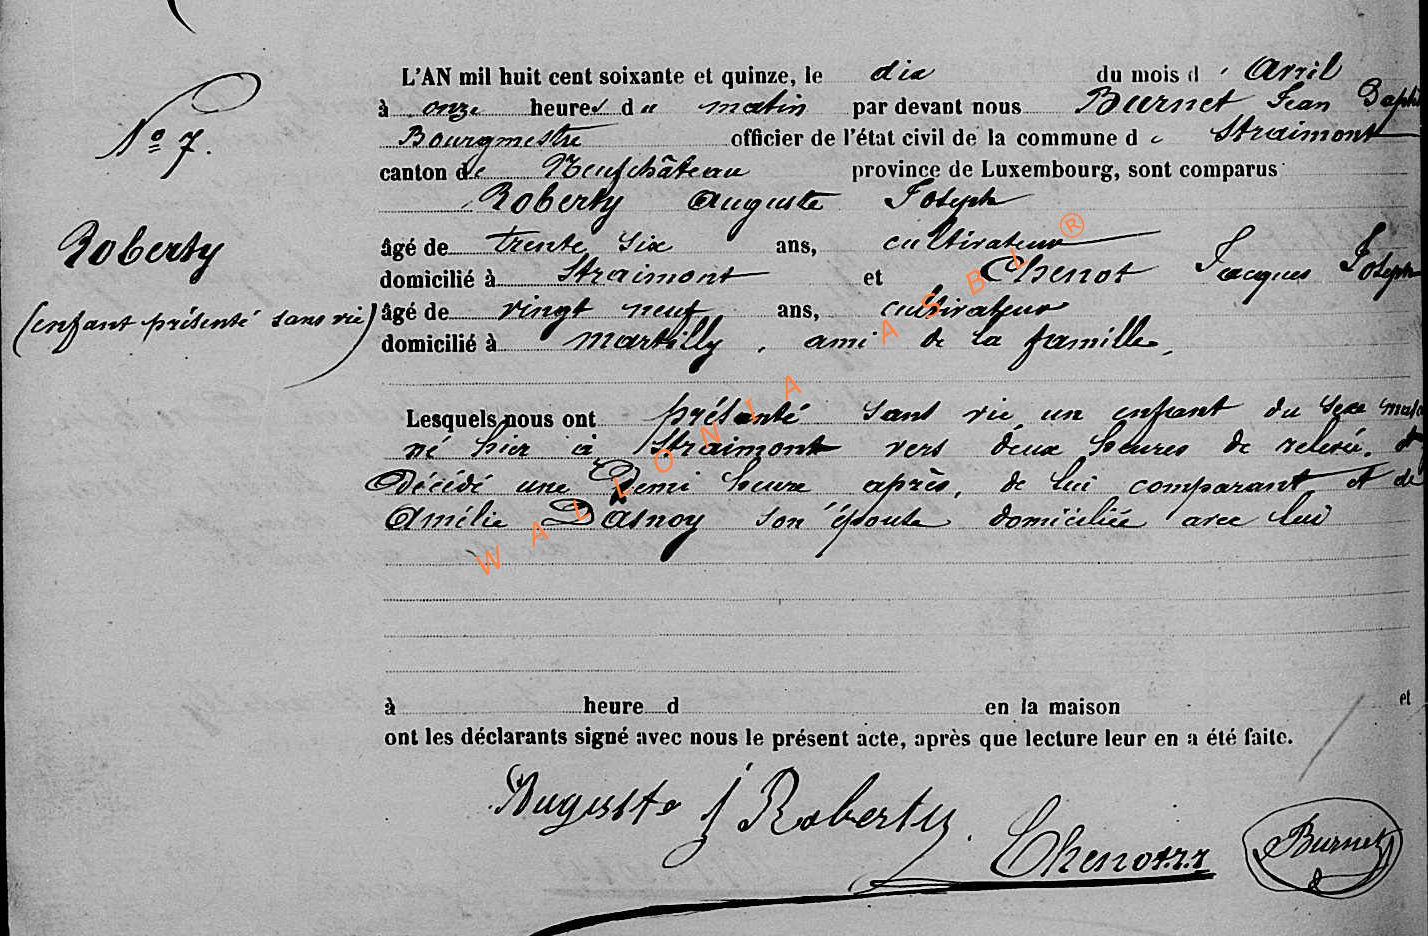 L'AN mil huit cent soixante et quinze, le dix du mois d' Avril
à onze heures du matin par devant nous Burnet Jean Bapti
Bourgmestre officier de l'état civil de la commune de Straimont
canton de Neufchâteau province de Luxembourg, sont comparus
Roberty Auguste Joseph
âgé de trente six ans, cultivateur
domicilié à Straimont et Chenot Jacques Joseph
âgé de vingt neuf ans, cultivateur
domicilié à Martilly, ami de la famille,
Nº 7.
Roberty
(enfant présenté sans vie)
Lesquels nous ont présenté sans vie un enfant du sexe masc
né hier à Straimont vers deux heures de relevée. et
Décédé une Demi heure après, de lui comparant et de
Amélie Dasnoy son épouse domiciliée avec lui
à heure d en la maison et
ont les déclarants signé avec nous le présent acte, après que lecture leur en a été faite.
Auguste J Roberty.
Chenot J.J
Burnet
WALLONIA ASBL ®